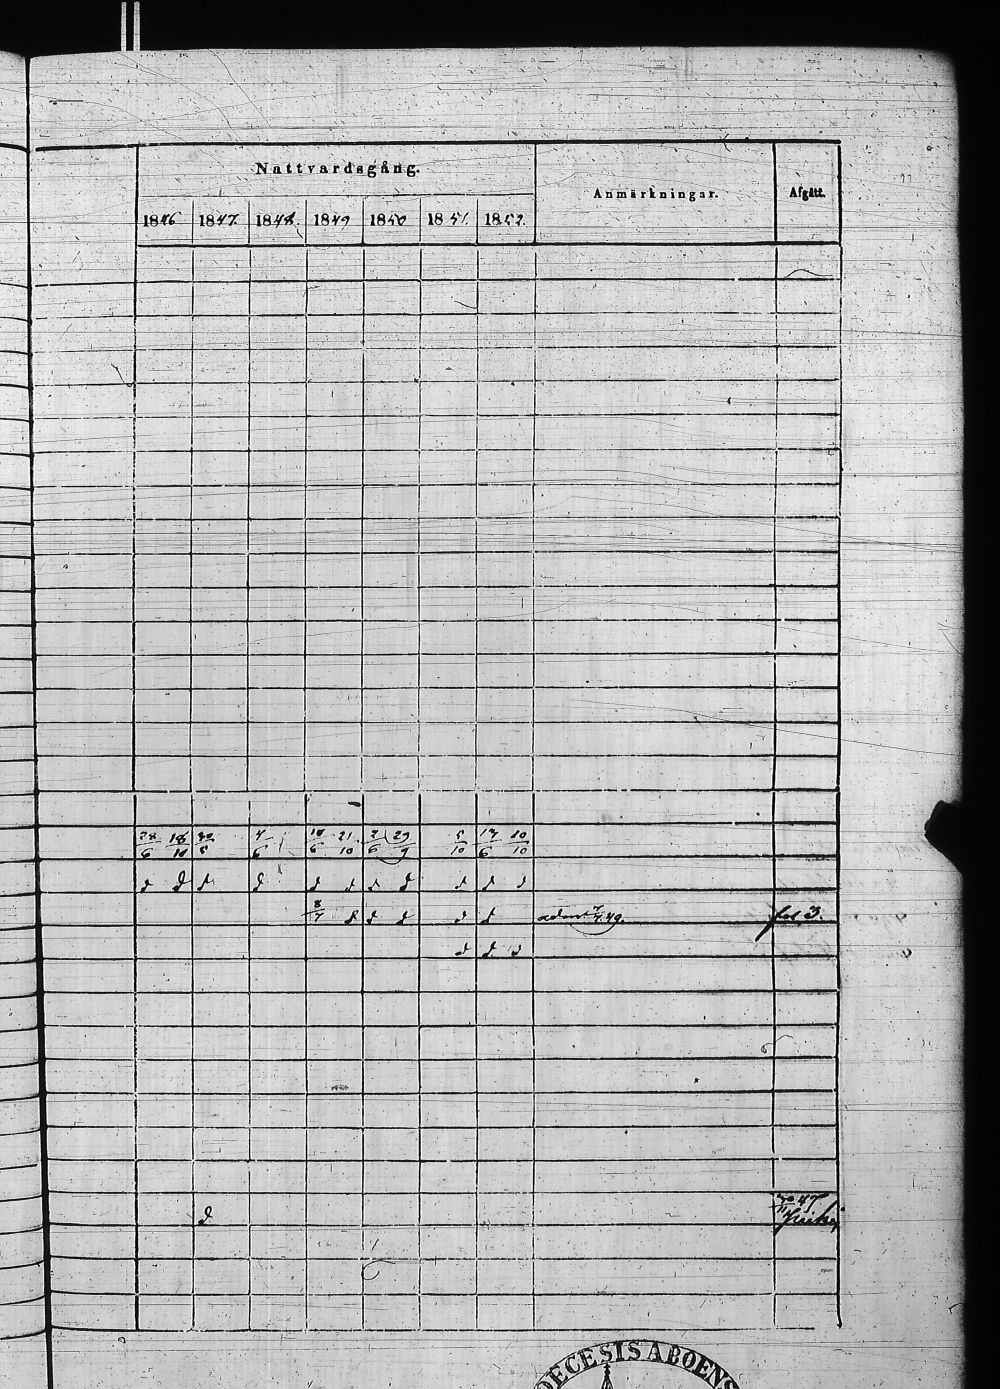 Nattvardsgång.
Anmärkningar. Afgått.
1846 1847. 1848. 1849 1850 1851. 1852.
28/6 18/10 30/5 4/6 10/6 21/10 2/6 29/9 5/10 13/6 10/10
d d d d d d d d d d d
8/7 d d d d d admit 7/7.49. fol 3.
d d d
47.
d
DECESIS ABOENS